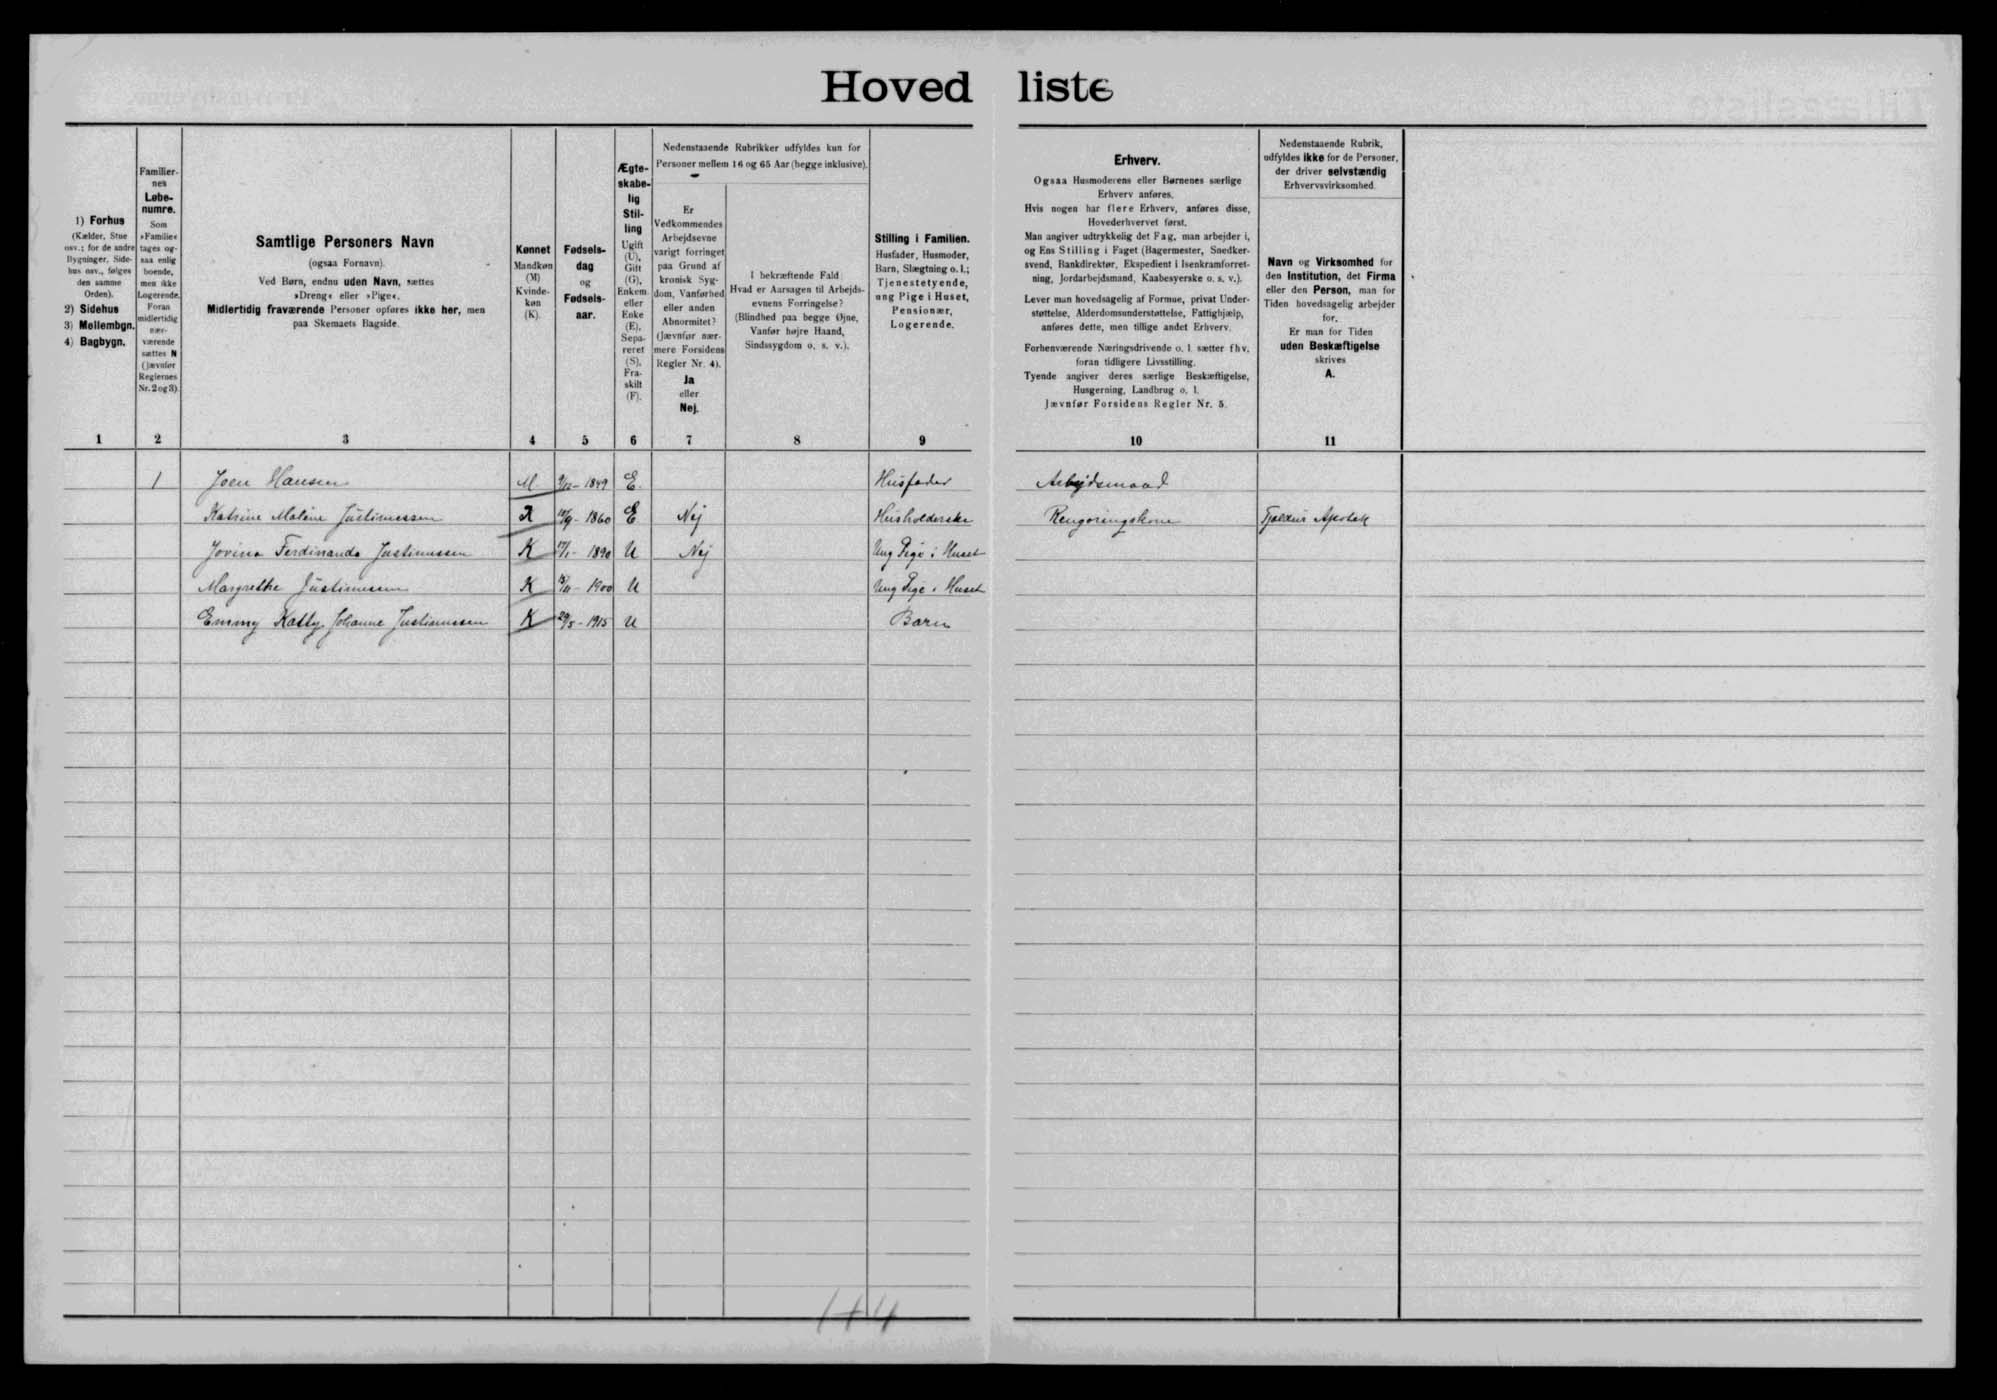 Hovedliste
1) Forhus
(Kælder, Stue
osv.; for de andre
Bygninger, Side-
hus osv., følges
den samme
Orden).
2) Sidehus
3) Mellembgn.
4) Bagbygn.
Familier-
nes
Løbe-
numre.
Som
»Familie«
tages og-
saa enlig
boende,
men ikke
Logerende.
Foran
midlertidig
nær-
værende
sættes N
(jævnfør
Reglernes
Nr. 2 og 3).
Samtlige Personers Navn
(ogsaa Fornavn).
Ved Børn, endnu uden Navn, sættes
»Dreng« eller »Pige«.
Midlertidig fraværende Personer opføres ikke her, men
paa Skemaets Bagside.
Kønnet
Mandkøn
(M)
Kvinde-
køn
(K).
Fødsels-
dag
og
Fødsels-
aar.
Ægte-
skabe-
lig
Stil-
ling
Ugift
(U),
Gift
(G),
Enkem.
eller
Enke
(E),
Sepa-
reret
(S),
Fra-
skilt
(F).
Nedenstaaende Rubrikker udfyldes kun for
Personer mellem 16 og 65 Aar (begge inklusive).
Er
Vedkommendes
Arbejdsevne
varigt forringet
paa Grund af
kronisk Syg-
dom, Vanførhed
eller anden
Abnormitet?
(Jævnfør nær-
mere Forsidens
Regler Nr. 4).
Ja
eller
Nej.
I bekræftende Fald:
Hvad er Aarsagen til Arbejds-
evnens Forringelse?
(Blindhed paa begge Øjne,
Vanfør højre Haand,
Sindssygdom o. s. v.).
Stilling i Familien.
Husfader, Husmoder,
Barn, Slægtning o. l.;
Tjenestetyende,
ung Pige i Huset,
Pensionær,
Logerende.
Erhverv.
Ogsaa Husmoderens eller Børnenes særlige
Erhverv anføres.
Hvis nogen har flere Erhverv, anføres disse,
Hovederhvervet først.
Man angiver udtrykkelig det Fag, man arbejder i,
og Ens Stilling i Faget (Bagermester, Snedker-
svend, Bankdirektør, Ekspedient i Isenkramforret-
ning, Jordarbejdsmand, Kaabesyerske o. s. v.).
Lever man hovedsagelig af Formue, privat Under-
støttelse, Alderdomsunderstøttelse, Fattighjælp,
anføres dette, men tillige andet Erhverv.
Forhenværende Næringsdrivende o. l. sætter fhv.
foran tidligere Livsstilling.
Tyende angiver deres særlige Beskæftigelse,
Husgerning, Landbrug o. l.
Jævnfør Forsidens Regler Nr. 5.
Nedenstaaende Rubrik,
udfyldes ikke for de Personer,
der driver selvstændig
Erhvervsvirksomhed.
Navn og Virksomhed for
den Institution, det Firma
eller den Person, man for
Tiden hovedsagelig arbejder
for.
Er man for Tiden
uden Beskæftigelse
skrives
A.
1 2 3 4 5 6 7 8 9 10 11
1 Joen Hansen M. 1849 E. Husfader Arbejdsmand
Katrine Malene Justinussen K 1860 E Nej Husholderske Rengøringskone Tjaldur Apotek
Jovina Ferdinanda Justinussen K 1890 U Nej Ung Pige i Huset
Margrethe Justinussen K 1900 U Ung Pige i Huset
Emmy Katty Johanne Justinussen K 29/5 - 1915 U Barn
1+4